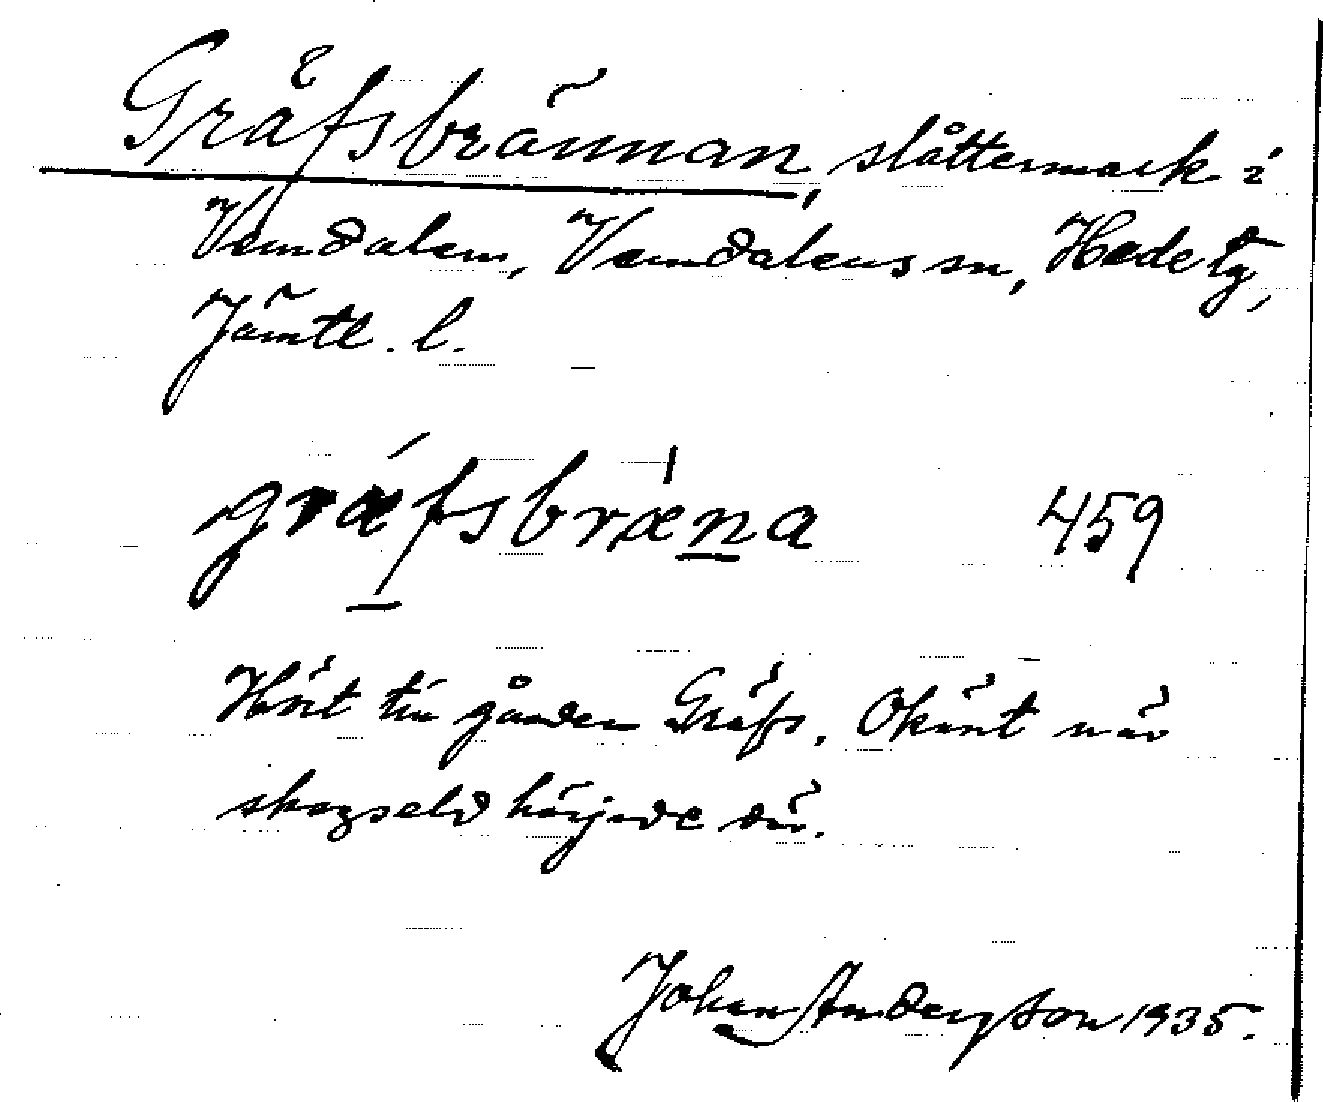 Gräfsbrännan, slåttermark i
Vemdalen, Vemdalens sn, Hede tg,
Jämtl. l.
græfsbræna 459
Hört till gården Gräfs. Okänt när
skogseld härjade där.
Johan Andersson 1935.